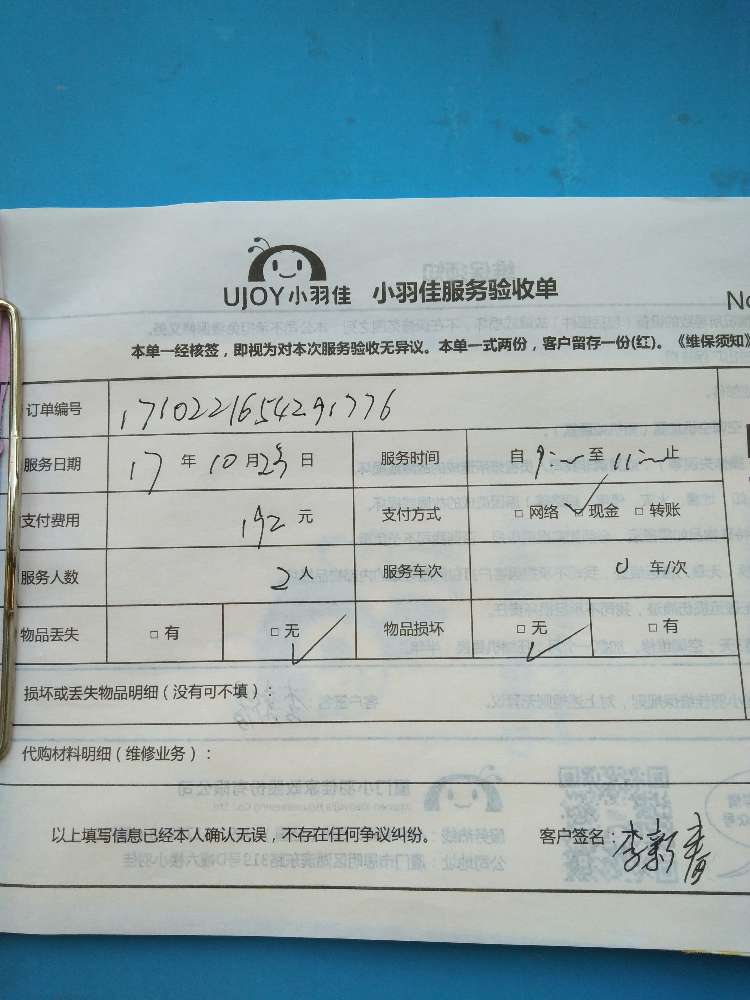 UJOY小羽佳 小羽佳服务验收单
No
本单一经核签，即视为对本次服务验收无异议。本单一式两份，客户留存一份(红)。《维保须知》
订单编号 1710221654291776
服务日期 17 年 10 月 23 日 服务时间 自 9:— 至 11:— 止
支付费用 192 元 支付方式 □ 网络 □ 现金 □ 转账
服务人数 2 人 服务车次 0 车/次
物品丢失 □ 有 □ 无 物品损坏 □ 无 □ 有
损坏或丢失物品明细（没有可不填）：
代购材料明细（维修业务）：
以上填写信息已经本人确认无误，不存在任何争议纠纷。 客户签名：李新春